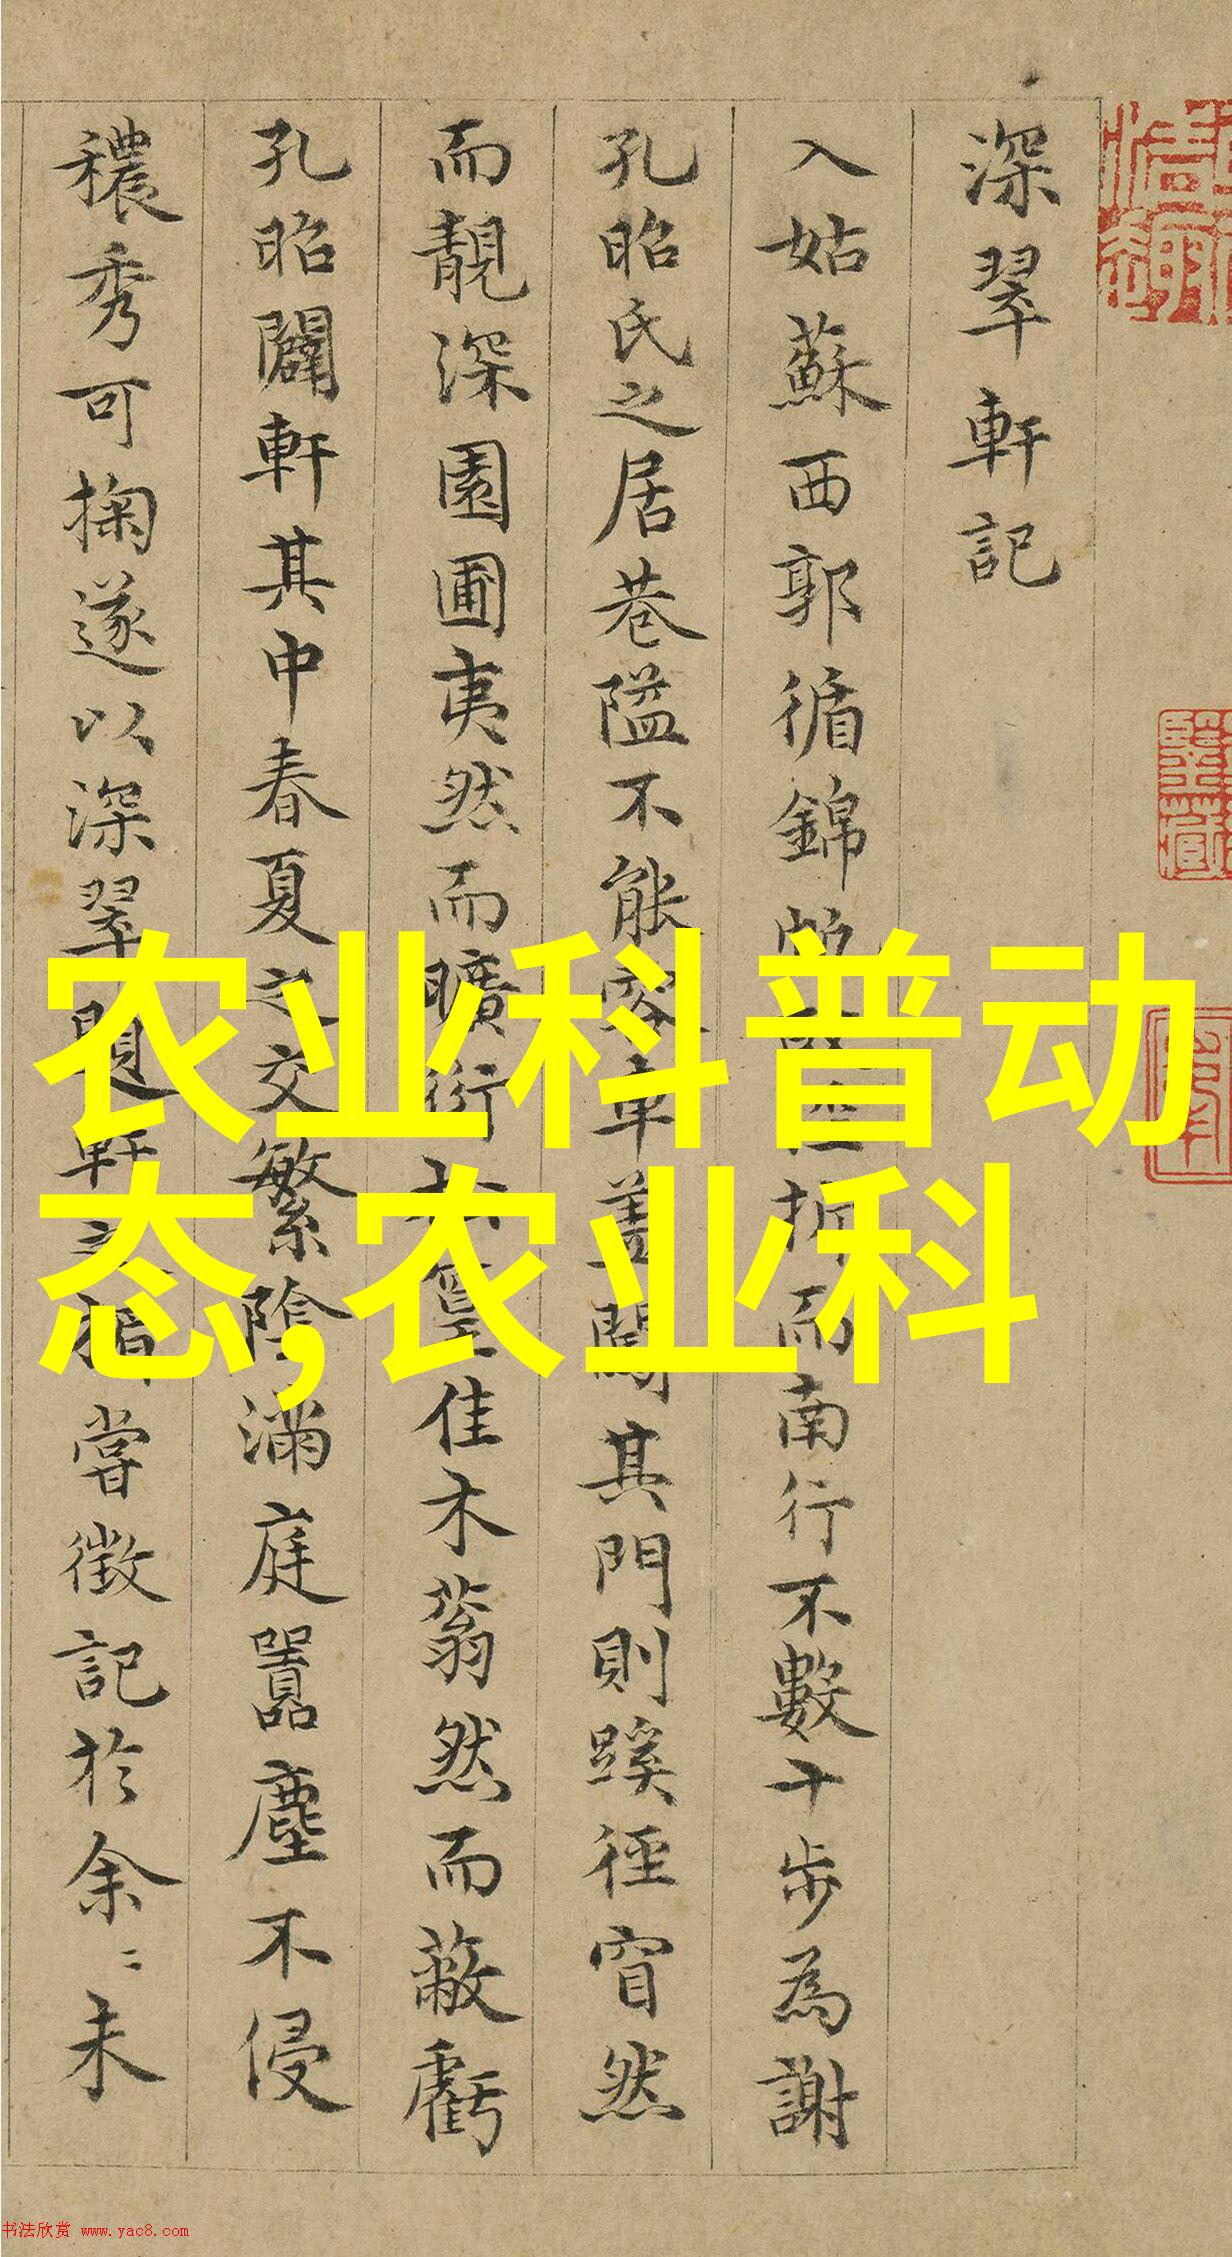 深翠軒記
入姑蘇西郭循錦折而南行不數十步為謝
孔昭氏之居巷隘不能容車蓋闖其門則蹊徑窅然
而靚深園圃夷然而曠衍佳木蓊然而蔽虧
孔昭闢軒其中春夏之交繁陰滿庭囂塵不侵
穠秀可掬遂以深翠題軒之楣嘗徵記於余〻未
农业科普动
态,农业科
书法欣赏 www.yac8.com